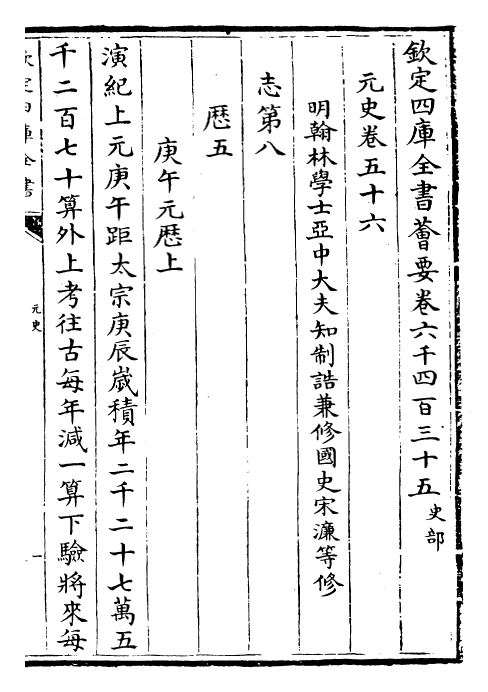 欽定四庫全書薈要卷六千四百三十五 史部
元史卷五十六
明翰林學士亞中大夫知制誥兼修國史宋濂等修
志第八
厯五
庚午元厯上
演紀上元庚午距太宗庚辰嵗積年二千二十七萬五
千二百七十算外上考往古每年減一算下驗將來每
欽定四庫全書
元史
一